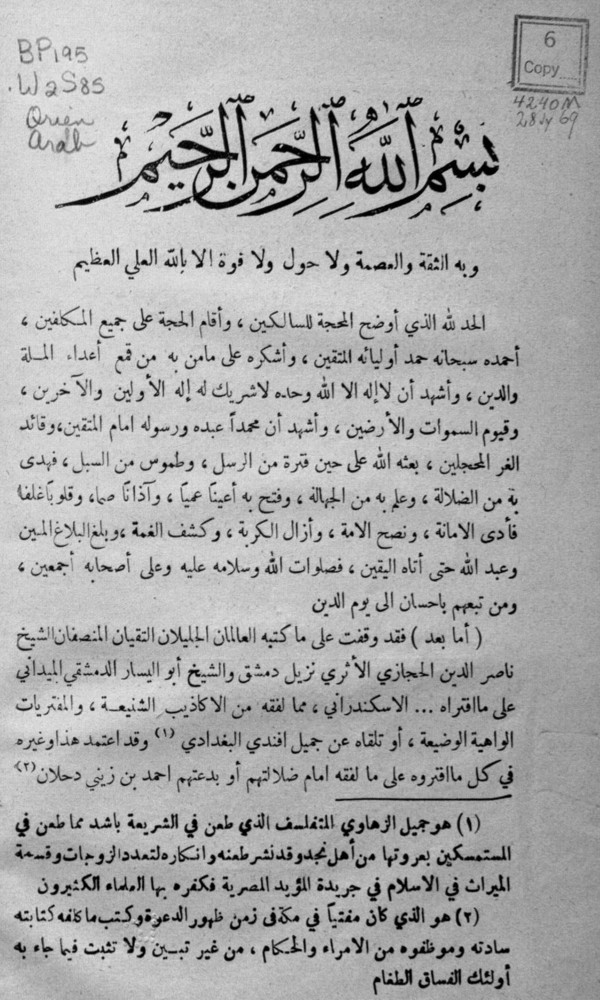 BP195
.W2S85
Orien
Arab
6
Copy
4240M
28 Jy 69
بسم الله الرحمن الرحيم
وبه الثقة والعصمة ولا حول ولا قوة الا بالله العلي العظيم
الحمد لله الذي أوضح المحجة للسالكين ، وأقام الحجة على جميع المكلفين ،
أحمده سبحانه حمد أوليائه المتقين ، وأشكره على مامن به من قمع أعداء الملة
والدين ، وأشهد أن لاإله الا الله وحده لاشريك له إله الأولين والآخرين ،
وقيوم السموات والأرضين ، وأشهد أن محمداً عبده ورسوله امام المتقين، وقائد
الغر المحجلين ، بعثه الله على حين فترة من الرسل ، وطموس من السبل ، فهدى
به من الضلالة ، وعلم به من الجهالة ، وفتح به أعيناً عمياً ، وآذاناً صما، وقلوباً غلفا
فأدى الامانة ، ونصح الامة ، وأزال الكربة ، وكشف الغمة ، وبلغ البلاغ المبين
وعبد الله حتى أتاه اليقين ، فصلوات الله وسلامه عليه وعلى أصحابه أجمعين ،
ومن تبعهم باحسان الى يوم الدين
( أما بعد ) فقد وقفت على ما كتبه العالمان الجليلان التقيان المنصفان الشيخ
ناصر الدين الحجازي الأثري نزيل دمشق والشيخ أبو اليسار الدمشقي الميداني
على ماافتراه ... الاسكندراني ، مما لفقه من الاكاذيب الشنيعة ، والمفتريات
الواهية الوضيعة ، أو تلقاه عن جميل افندي البغدادي (١) وقد اعتمد هذا وغيره
في كل ماافتروه على ما لفقه امام ضلالتهم أو بدعتهم احمد بن زيني دحلان (٢)
(١) هو جميل الزهاوي المتفلسف الذي طعن في الشريعة باشد مما طعن في
المستمسكين بعروتها من أهل نجد وقد نشر طعنه وانكاره لتعدد الزوجات وقسمة
الميراث في الاسلام في جريدة المؤيد المصرية فكفره بها العلماء الكثيرون
(٢) هو الذي كان مفتياً في مكة في زمن ظهور الدعوة وكتب ما كلفه كتابته
سادته وموظفوه من الامراء والحكام ، من غير تبين ولا تثبت فيما جاء به
أولئك الفساق الطغام